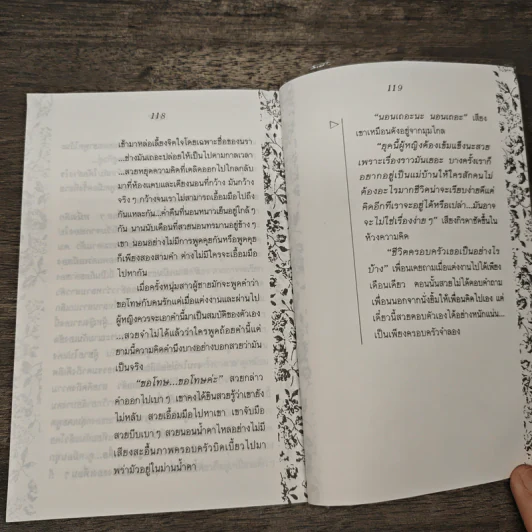 118
เข้ามาหล่อเลี้ยงจิตใจโดยเฉพาะชื่อของนรา
...ช่างมันเถอะปล่อยให้เป็นไปตามกาลเวลา
...สวยหยุดความคิดที่เตลิดออกไปไกลกลับ
มาที่ห้องแคบและเตียงนอนที่กว้าง มันกว้าง
จริง ๆ กว้างจนเราไม่สามารถเอื้อมมือไปถึง
กันและกัน...ค่ำคืนที่นอนหนาวเย็นอยู่ใกล้ ๆ
กัน นานนับเดือนที่สวยนอนทรมานอยู่ข้าง ๆ
เขา นอนอย่างไม่มีการพูดคุยกันหรือพูดคุย
ก็เพียงสองสามคำ ต่างไม่มีใครจะเอื้อมมือ
ไปหากัน
เมื่อครั้งหนุ่มสาวผู้ชายมักจะพูดคำว่า
ขอโทษกับคนรักแต่เมื่อแต่งงานและผ่านไป
ผู้หญิงควรจะเอาคำนี้มาเป็นสมบัติของตัวเอง
...สวยจำไม่ได้แล้วว่าใครพูดถ้อยคำนี้แต่
ยามนี้ความคิดคำนึงบางอย่างบอกสวยว่ามัน
เป็นจริง
“ขอโทษ...ขอโทษค่ะ” สวยกล่าว
คำออกไปเบาๆ เขาคงได้ยินสวยรู้ว่าเขายัง
ไม่หลับ สวยเอื้อมมือไปหาเขา เขาจับมือ
สวยบีบเบาๆ สวยนอนน้ำตาไหลอย่างไม่มี
เสียงสะอื้นภาพครอบครัวบิดเบี้ยวไปมา
พร่ามัวอยู่ในม่านน้ำตา
119
“นอนเถอะนะ นอนเถอะ” เสียง
เขาเหมือนดังอยู่จากมุมไกล
“ยุคนี้ผู้หญิงต้องเข้มแข็งนะสวย
เพราะเรื่องราวมันเยอะ บางครั้งเราก็
อยากอยู่เป็นแม่บ้านให้ใครสักคนไม่
ต้องอะไรมากชีวิตน่าจะเรียบง่ายดีแต่
คิดอีกทีเราจะอยู่ได้หรือเปล่า...มันอาจ
จะไม่ใช่เรื่องง่ายๆ” เสียงกิรดาชัดขึ้นใน
ห้วงความคิด
“ชีวิตครอบครัวเธอเป็นอย่างไร
บ้าง” เพื่อนเคยถามเมื่อแต่งงานไปได้เพียง
เดือนเดียว ตอนนั้นสวยไม่ได้ตอบคำถาม
เพื่อนนอกจากนั่งยิ้มให้เพื่อนคิดไปเอง แต่
เดี๋ยวนี้สวยตอบตัวเองได้อย่างหนักแน่น...
เป็นเพียงครอบครัวจำลอง